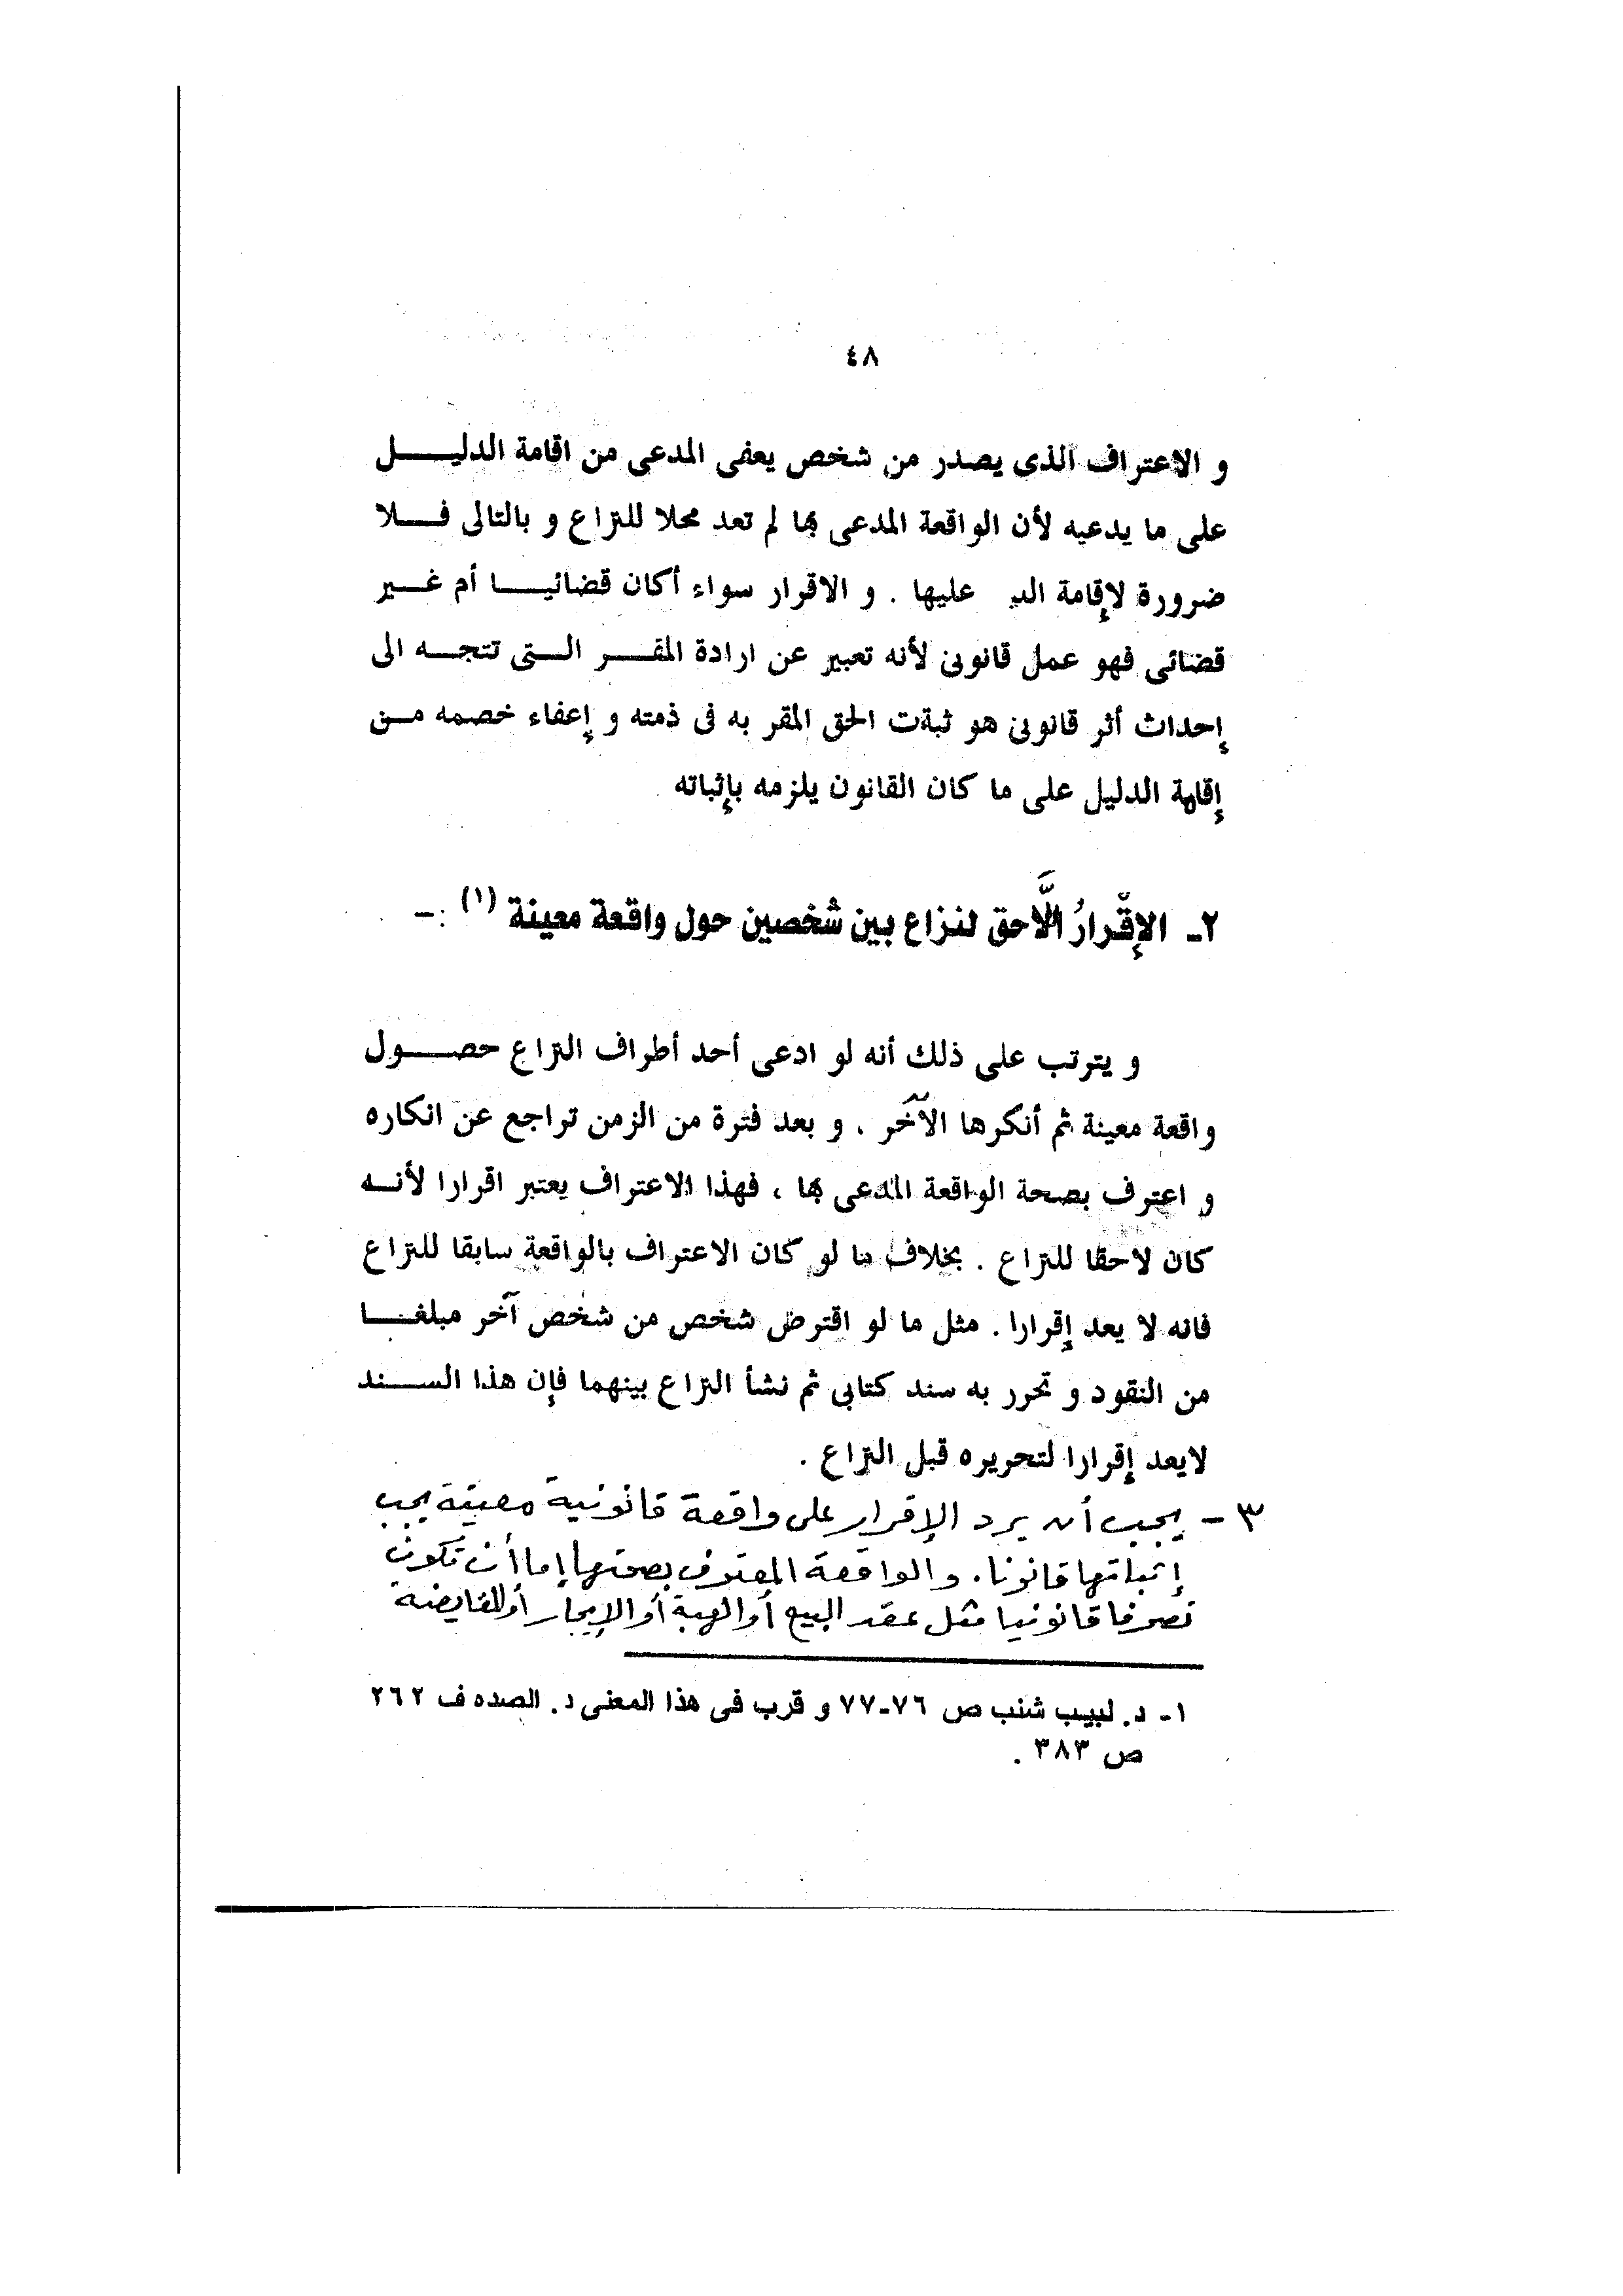 ٤٨
و الاعتراف الذى يصدر من شخص يعفى المدعى من اقامة الدليـــل
على ما يدعيه لأن الواقعة المدعى بها لم تعد محلا للنزاع و بالتالى فـــلا
ضرورة لإقامة عليها . و الاقرار سواء أكان قضائيـــا أم غـــير
قضائى فهو عمل قانونى لأنه تعبير عن ارادة المقـــر الـــتى تتجـــه الى
إحداث أثر قانونى هو ثبوت الحق المقر به فى ذمته و إعفاء خصمه مـــن
إقامة الدليل على ما كان القانون يلزمه بإثباته
٢- الإقرارُ الَّلاحق لنزاع بين شخصين حول واقعة معينة (١) :-
و يترتب على ذلك أنه لو ادعى أحد أطراف النزاع حصـــول
واقعة معينة ثم أنكرها الآخر . و بعد فترة من الزمن تراجع عن انكاره
و اعترف بصحة الواقعة المدعى بها ، فهذا الاعتراف يعتبر اقرارا لأنـــه
كان لاحقا للنزاع . بخلاف ما لو كان الاعتراف بالواقعة سابقا للنزاع
فانه لا يعد إقرارا . مثل ما لو اقترض شخص من شخص آخر مبلغـــا
من النقود و تحرر به سند كتابى ثم نشأ النزاع بينهما فإن هذا الســـند
لايعد إقرارا لتحريره قبل النزاع .
٣- يجب أن يرد الإقرار على واقعة قانونية معينة يجب
إثباتها قانونا . والواقعة المعترف بصحتها إما أن تكون
تصرفا قانونيا مثل عقد البيع أو الهبة أو الإيجار أو المقايضة
١- د. لبيب شنب ص ٧٦-٧٧ و قرب فى هذا المعنى د. الصده ف ٢٦٢
ص ٣٨٣ .